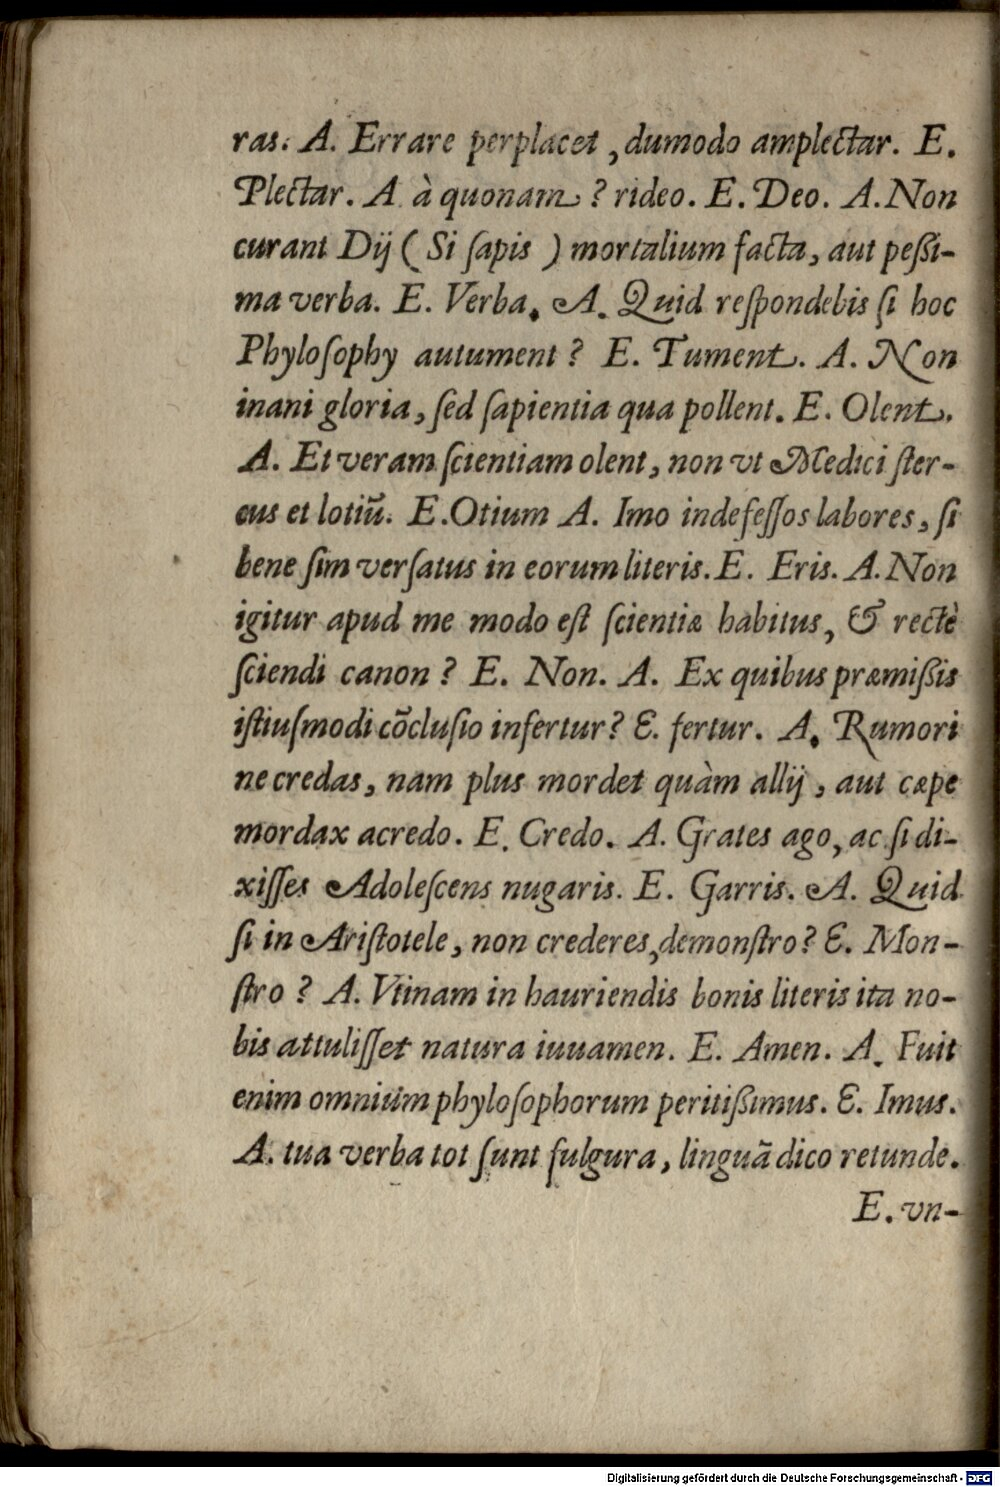 ras. A. Errare perplacet, dumodo amplectar. E.
Plectar. A. à quonam? rideo. E. Deo. A. Non
curant Dij ( Si ſapis ) mortalium facta, aut peßi-
ma verba. E. Verba. A. Quid reſpondebis ſi hoc
Phyloſophy autument? E. Tument. A. Non
inani gloria, ſed ſapientia qua pollent. E. Olent.
A. Et veram ſcientiam olent, non vt Medici ſter-
cus et lotiũ. E. Otium A. Imo indefeſſos labores, ſi
bene ſim verſatus in eorum literis. E. Eris. A. Non
igitur apud me modo eſt ſcientiæ habitus, & rectè
ſciendi canon? E. Non. A. Ex quibus præmißis
iſtiuſmodi cõcluſio infertur? E. fertur. A. Rumori
ne credas, nam plus mordet quàm allij, aut cæpe
mordax acredo. E. Credo. A. Grates ago, ac ſi di-
xiſſes Adoleſcens nugaris. E. Garris. A. Quid
ſi in Ariſtotele, non crederes, demonſtro? E. Mon-
ſtro? A. Vtinam in hauriendis bonis literis ita no-
bis attuliſſet natura iuuamen. E. Amen. A. Fuit
enim omnium phyloſophorum peritißimus. E. Imus.
A. tua verba tot ſunt fulgura, linguã dico retunde.
E. vn-
Digitalisierung gefördert durch die Deutsche Forschungsgemeinschaft - DFG